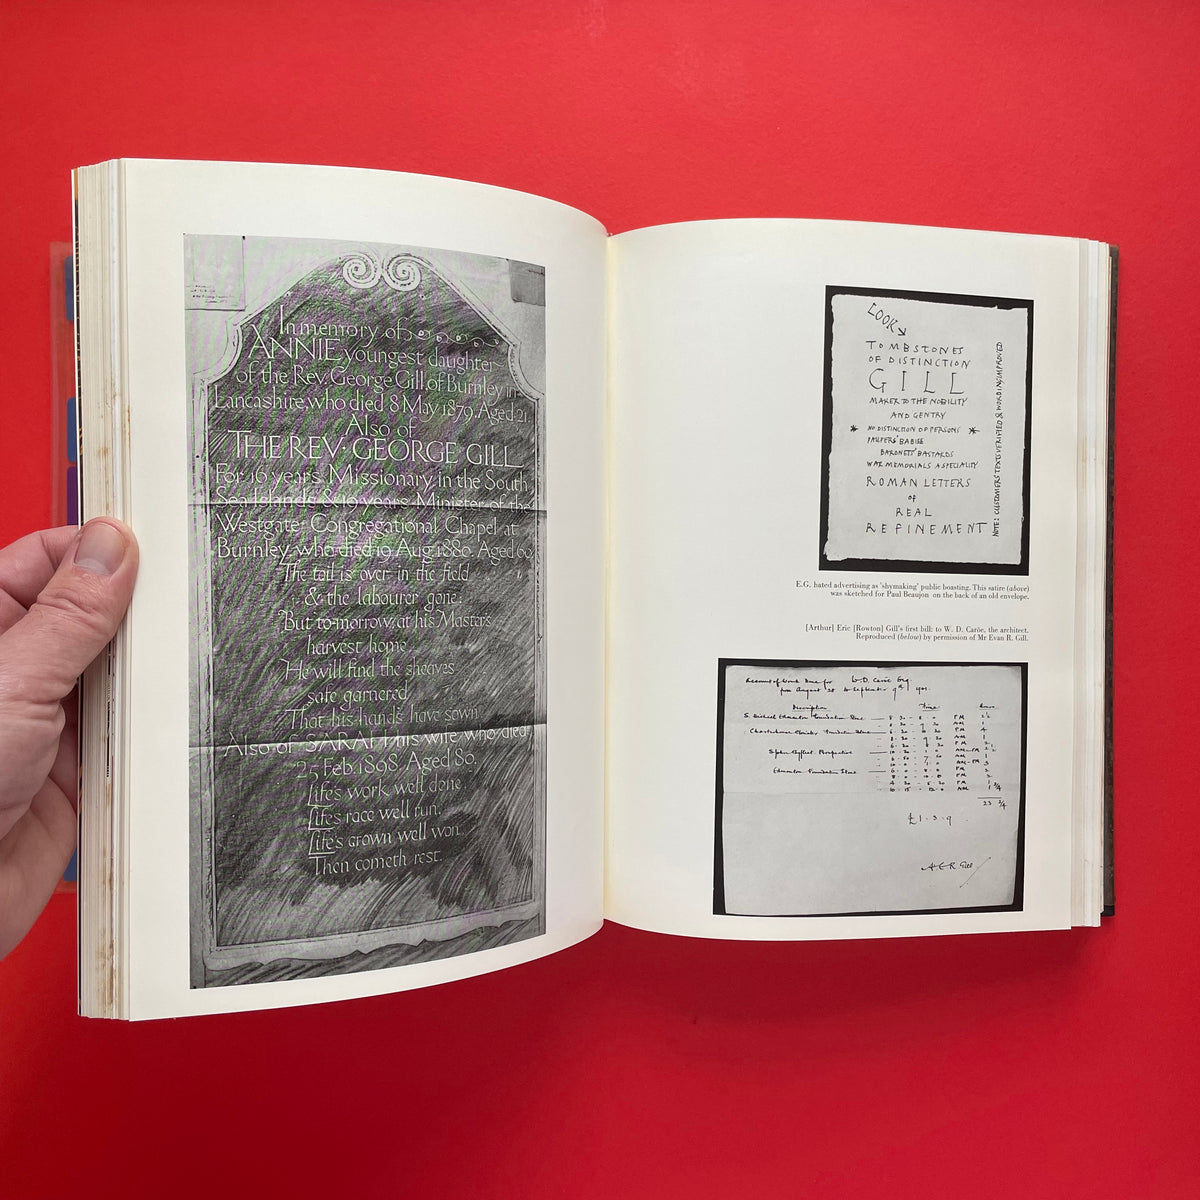 In memory of
ANNIE, youngest daughter
of the Rev. George Gill, of Burnley in
Lancashire, who died 8 May 1879. Aged 21.
Also of
THE REV. GEORGE GILL
For 16 years Missionary in the South
Sea Islands & 19 years Minister of the
Westgate Congregational Chapel at
Burnley, who died 19 Aug. 1880. Aged 60.
The toil is over in the field
& the labourer gone:
But to-morrow, at his Master's
harvest home,
He will find the sheaves
safe garnered
That his hands have sown.
Also of SARAH his wife who died
25 Feb. 1898. Aged 80.
Life's work well done
Life's race well run.
Life's crown well won.
Then cometh rest.
LOOK
TOMBSTONES
OF DISTINCTION
GILL
MAKER TO THE NOBILITY
AND GENTRY
* NO DISTINCTION OF PERSONS *
PAUPERS' BABIES
BARONETS' BASTARDS
WAR MEMORIALS A SPECIALITY
ROMAN LETTERS
OF
REAL
REFINEMENT
NOTE: CUSTOMERS TEXTS VERIFIED & WORDING IMPROVED
E.G. hated advertising as 'shymaking' public boasting. This satire (above)
was sketched for Paul Beaujon on the back of an old envelope.
[Arthur] Eric [Rowton] Gill's first bill: to W. D. Caröe, the architect.
Reproduced (below) by permission of Mr Evan R. Gill.
Account of Work Done for W. D. Caröe Esq.
from August 28 to September 9th 1901.
Description Time hours
S. Michael Edmonton Foundation Stone
Foundation Stone
Perspective
Edmonton Foundation Stone
23 3/4
£1-3-9
A E R Gill